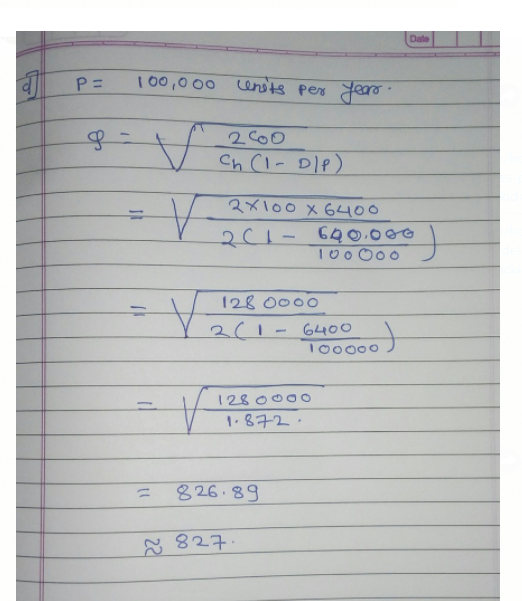 Date
d] P = 100,000 units per year.
Q = √(2C0D / Ch (1 - D/P))
= √(2×100×6400 / 2(1 - 640.000/100000))
= √(1280000 / 2(1 - 6400/100000))
= √(1280000 / 1.872.)
= 826.89
≈ 827.